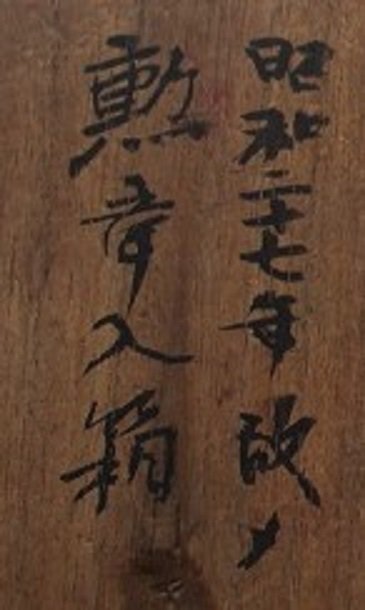 昭和二十七年改メ
勲章入箱